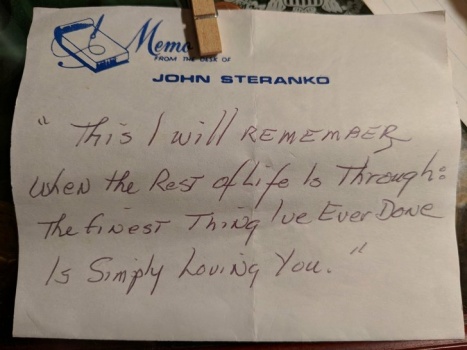 Memo
FROM THE DESK OF
JOHN STERANKO
"This I will REMEMBER
When the Rest of Life Is Through:
The finest Thing I've Ever Done
Is Simply Loving You."